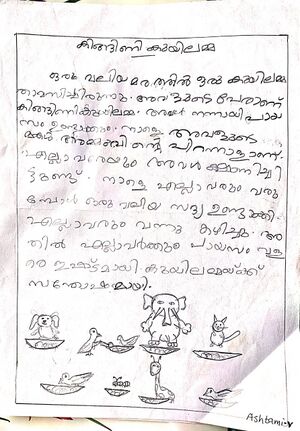 കിങ്ങിണി കുയിലമ്മ
ഒരു വലിയ മരത്തിൽ ഒരു കുയിലമ്മ
താമസിച്ചിരുന്നു. അവളുടെ പേരാണ്
കിങ്ങിണികുയിലമ്മ. അവൾ നന്നായി പായ
സം ഉണ്ടാക്കും. നാളെ അവളുടെ
പിറന്നാളാണ്.
എല്ലാവരെയും അവൾ ക്ഷണിച്ചി
ട്ടുണ്ട്. നാളെ എല്ലാവരും വരു
മ്പോൾ ഒരു വലിയ സദ്യ ഉണ്ടാക്കി.
എല്ലാവരും വന്നു കഴിച്ചു. അ
തിൽ എല്ലാവർക്കും പായസം വള
രെ ഇഷ്ടമായി കുയിലമ്മയ്ക്ക്
സന്തോഷമായി.
Ashtami-V